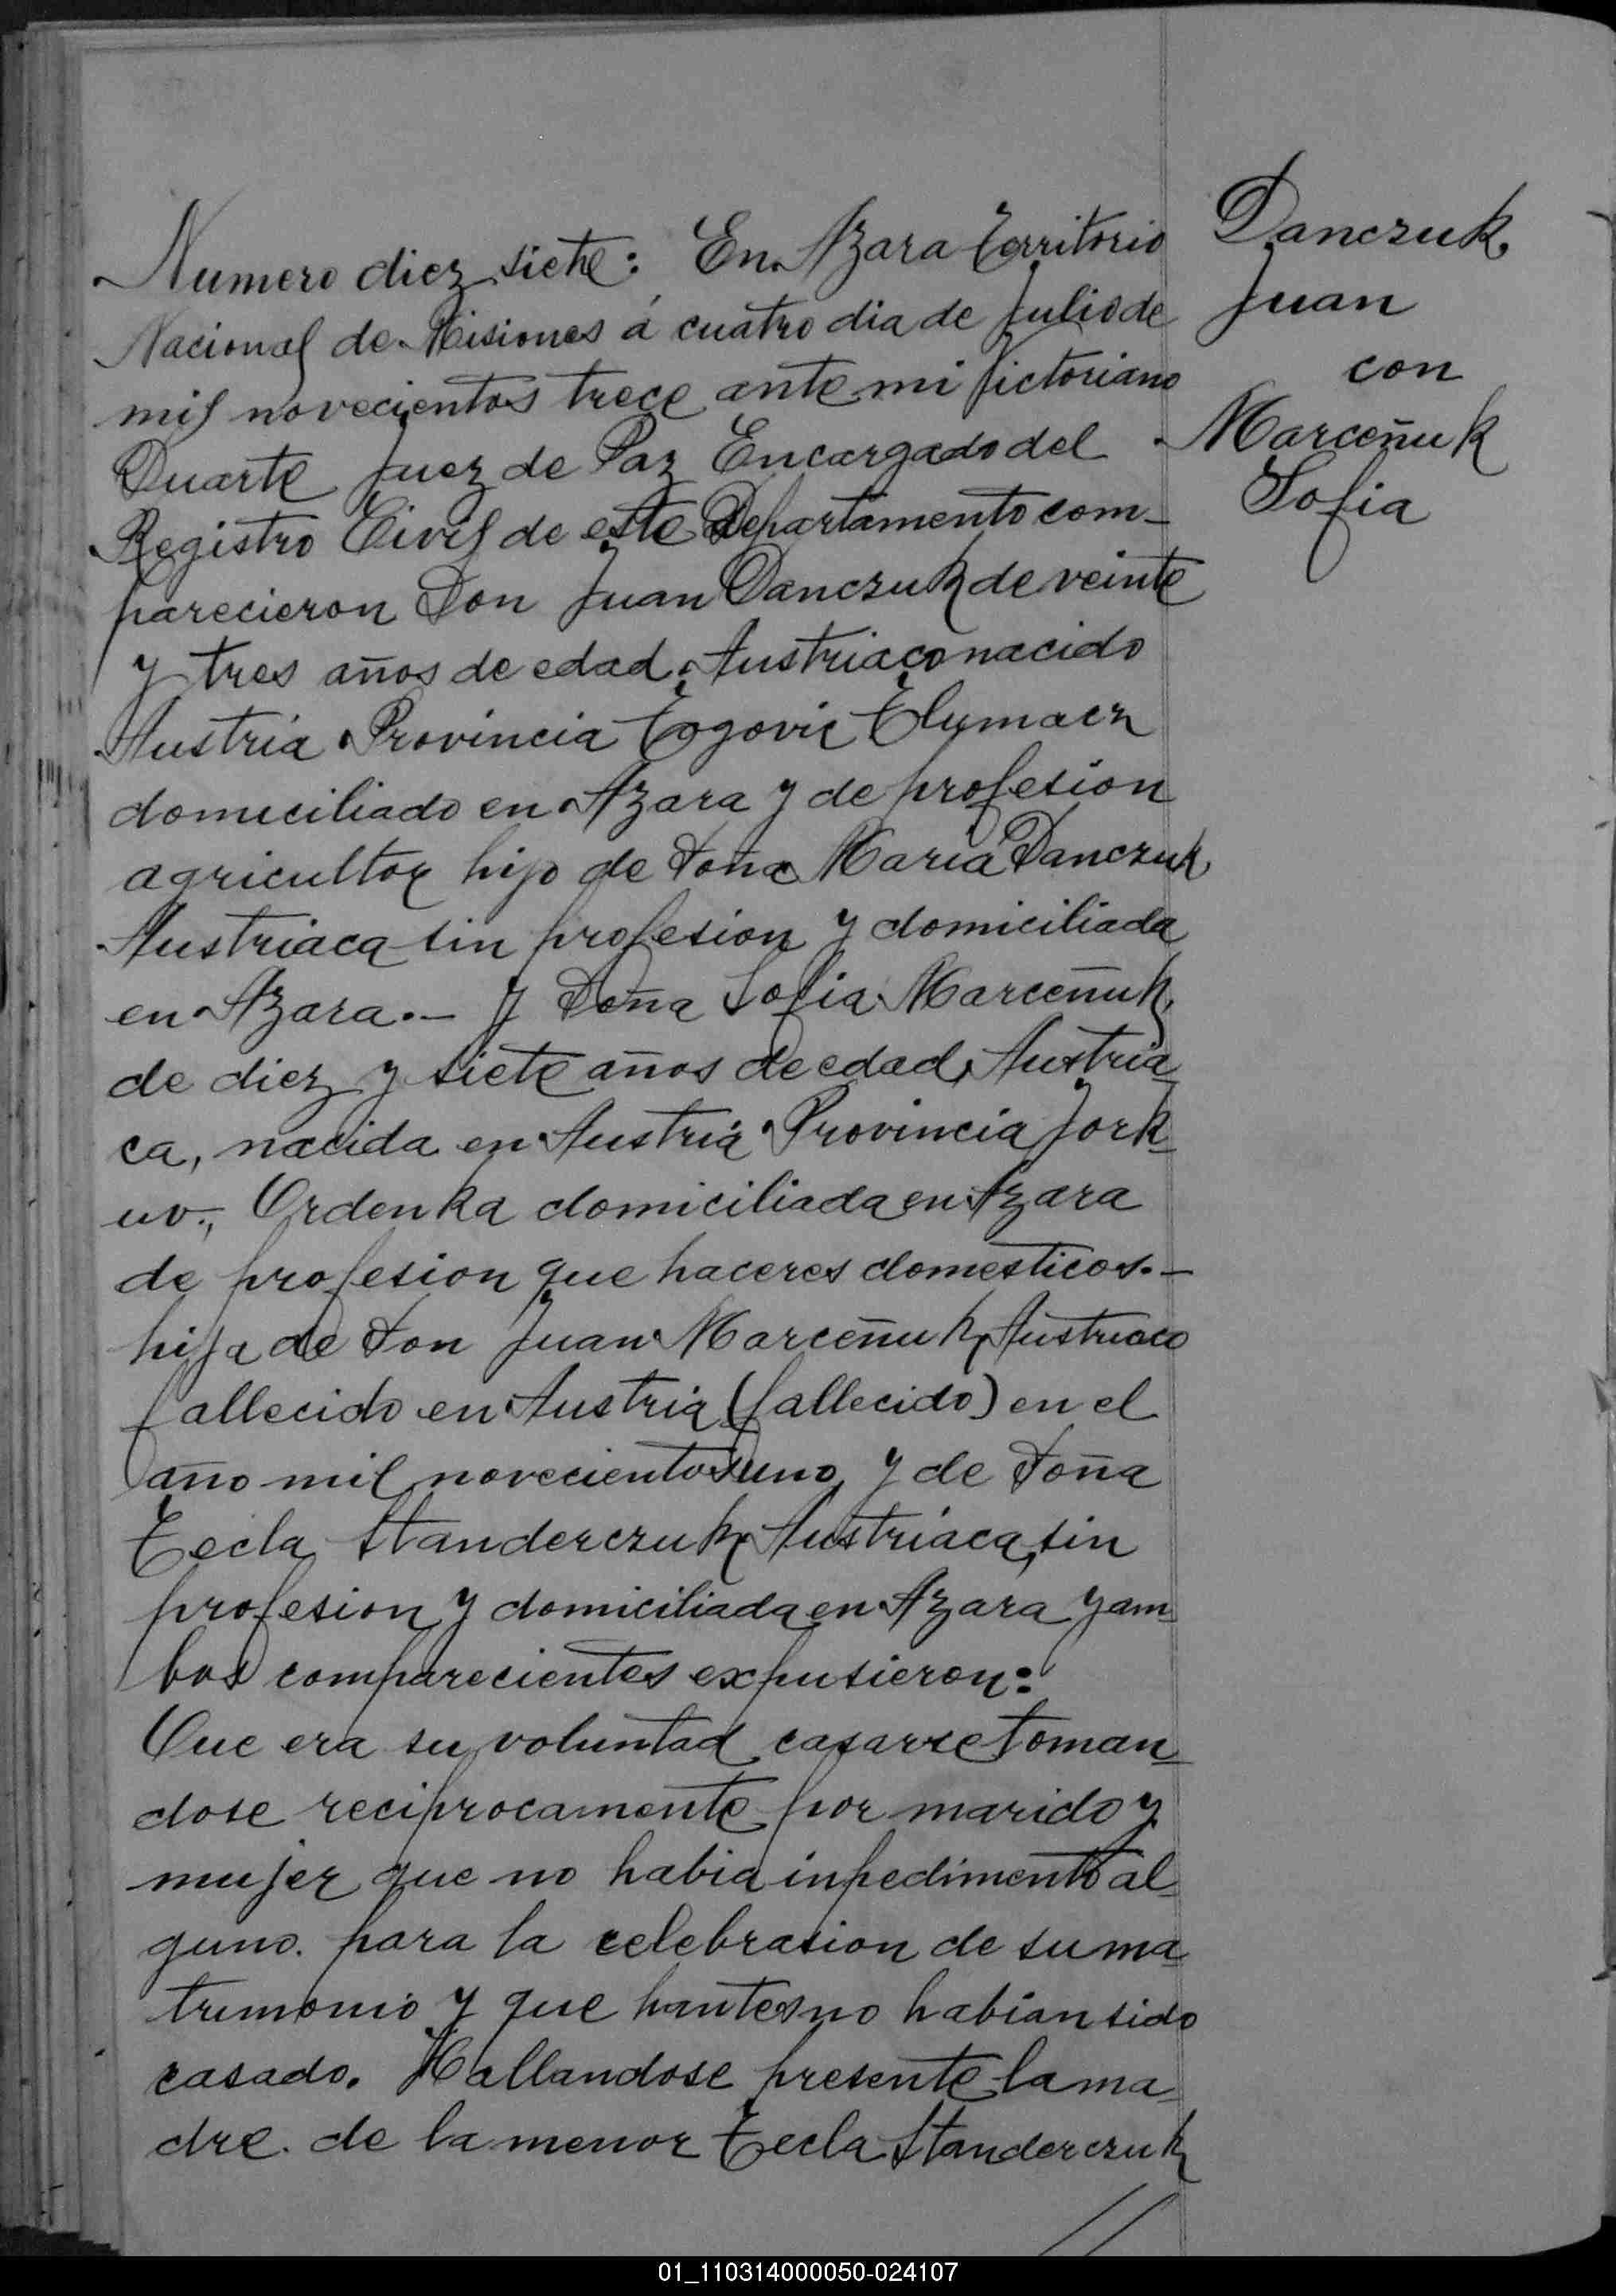 Numero diez siete: En Azara Territorio
Nacional de Misiones á cuatro dia de Julio de
mil novecientos trece ante mi Victoriano
Duarte Juez de Paz Encargado del
Registro Civil de este Departamento com-
parecieron Don Juan Danczuk de veinte
y tres años de edad, Austriaco nacido
Austria Provincia Togovic Tlumacz
domiciliado en Azara y de profesion
agricultor hijo de Doña Maria Danczuk,
Austriaca sin profesion y domiciliada
en Azara.- Y Doña Sofia Marceñuk,
de diez y siete años de edad, Austria
ca, nacida en Austria Provincia Jork-
uv., Ordenka domiciliada en Azara
de profesion que haceres domesticos.-
hija de Don Juan Marceñuk, Austriaco
fallecido en Austria (fallecido) en el
año mil novecientos uno, y de Doña
Tecla Standerczuk, Austriaca, sin
profesion y domiciliada en Azara y am
bos comparecientes expusieron:
Que era su voluntad casarse toman
dose reciprocamente por marido y
mujer que no habia inpedimento al
guno. para la celebrasion de su ma
trimonio y que hantes no habian sido
casado. Hallandose presente la ma
dre. de la menor Tecla Standerczuk
//
Danczuk,
Juan
con
Marceñuk
Sofia
01_110314000050-024107